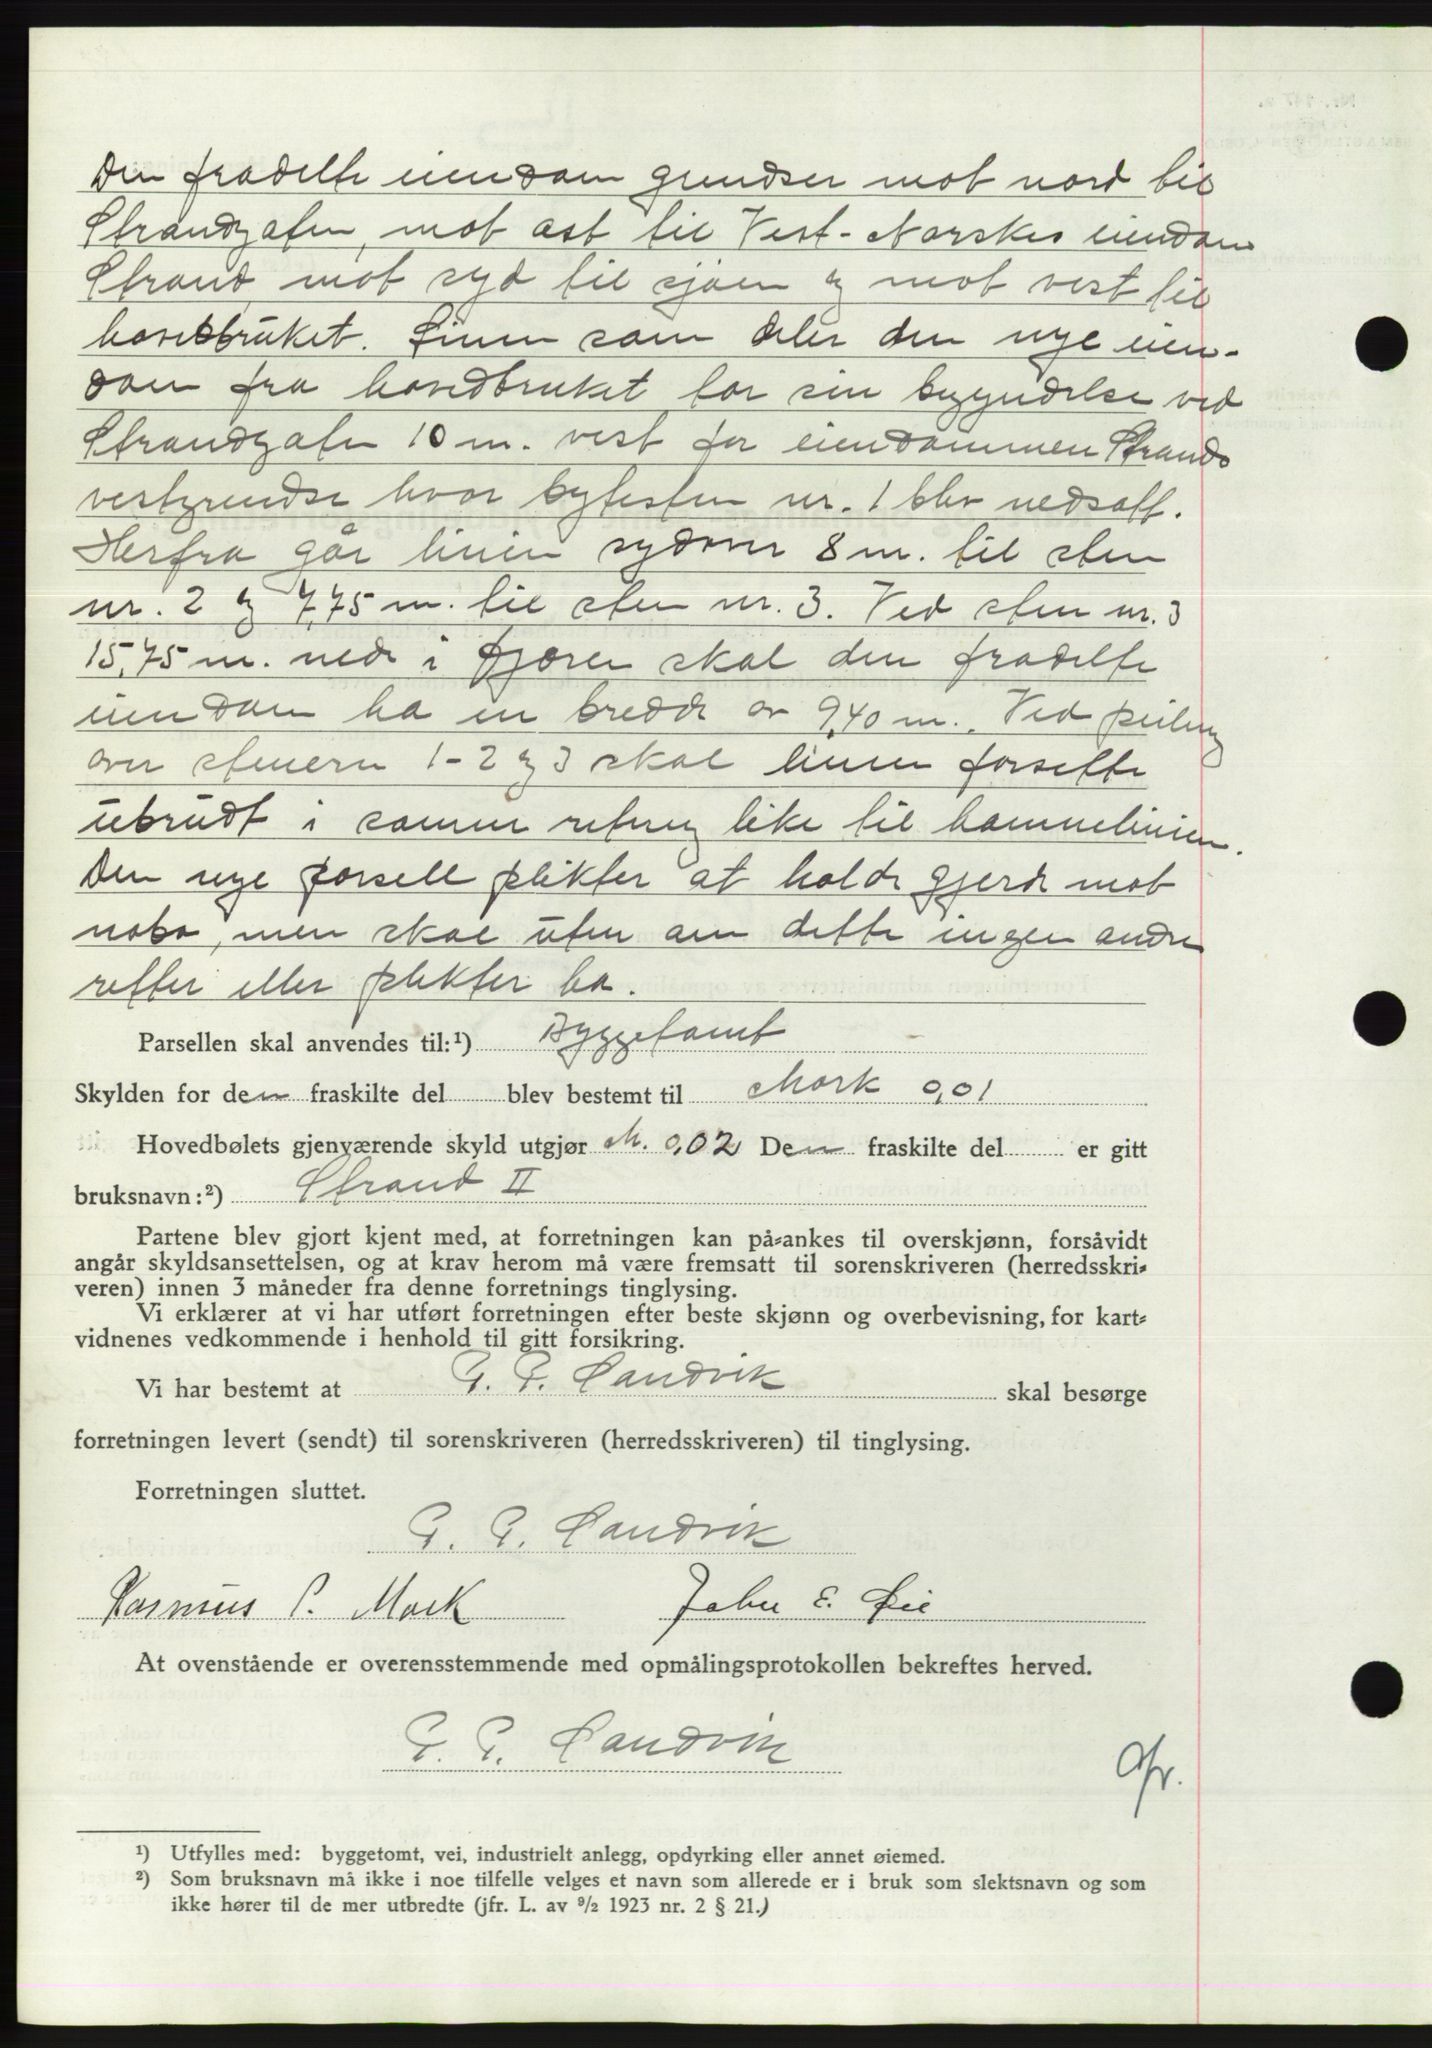 Den fradelte eiendom grendser mot nord til
Strandgaten, mot øst til Vest-Norskes eiendom
Strand, mot syd til sjøen og mot vest til
hovedbruket. Linen som deler den nye eien-
dom fra hovedbruket tar sin begyndelse ved
Strandgaten 10 m. vest for eiendommen Strands
vestgrendse hvor bytesten nr. 1 blev nedsatt.
Herfra går linien sydover 8 m. til sten
nr. 2 og 7,75 m. til sten nr. 3. Ved sten nr. 3
15,75 m. nede i fjæren skal den fradelte
eiendom ha en bredde av 9,40 m. Ved peiling
over stenern 1-2 og 3 skal linien forsette
ubrudt i samme retning like til hammelinien.
Den nye parsell plikter at holde gjerde mot
nabo, men skal uten om dette ingen andre
retter eller plikter ha.
Parsellen skal anvendes til:¹) Byggetomt
Skylden for den fraskilte del blev bestemt til Mark 0,01
Hovedbølets gjenværende skyld utgjør M. 0,02 Den fraskilte del er gitt
bruksnavn:²) Strand II
Partene blev gjort kjent med, at forretningen kan på-ankes til overskjønn, forsåvidt
angår skyldsansettelsen, og at krav herom må være fremsatt til sorenskriveren (herredsskri-
veren) innen 3 måneder fra denne forretnings tinglysing.
Vi erklærer at vi har utført forretningen efter beste skjønn og overbevisning, for kart-
vidnenes vedkommende i henhold til gitt forsikring.
Vi har bestemt at G. P. Sandvik skal besørge
forretningen levert (sendt) til sorenskriveren (herredsskriveren) til tinglysing.
Forretningen sluttet.
G. P. Sandvik
Rasmus P. Mork John E. Øie
At ovenstående er overensstemmende med opmålingsprotokollen bekreftes herved.
G. P. Sandvik
¹) Utfylles med: byggetomt, vei, industrielt anlegg, opdyrking eller annet øiemed.
²) Som bruksnavn må ikke i noe tilfelle velges et navn som allerede er i bruk som slektsnavn og som
ikke hører til de mer utbredte (jfr. L. av ⁹/₂ 1923 nr. 2 § 21.)